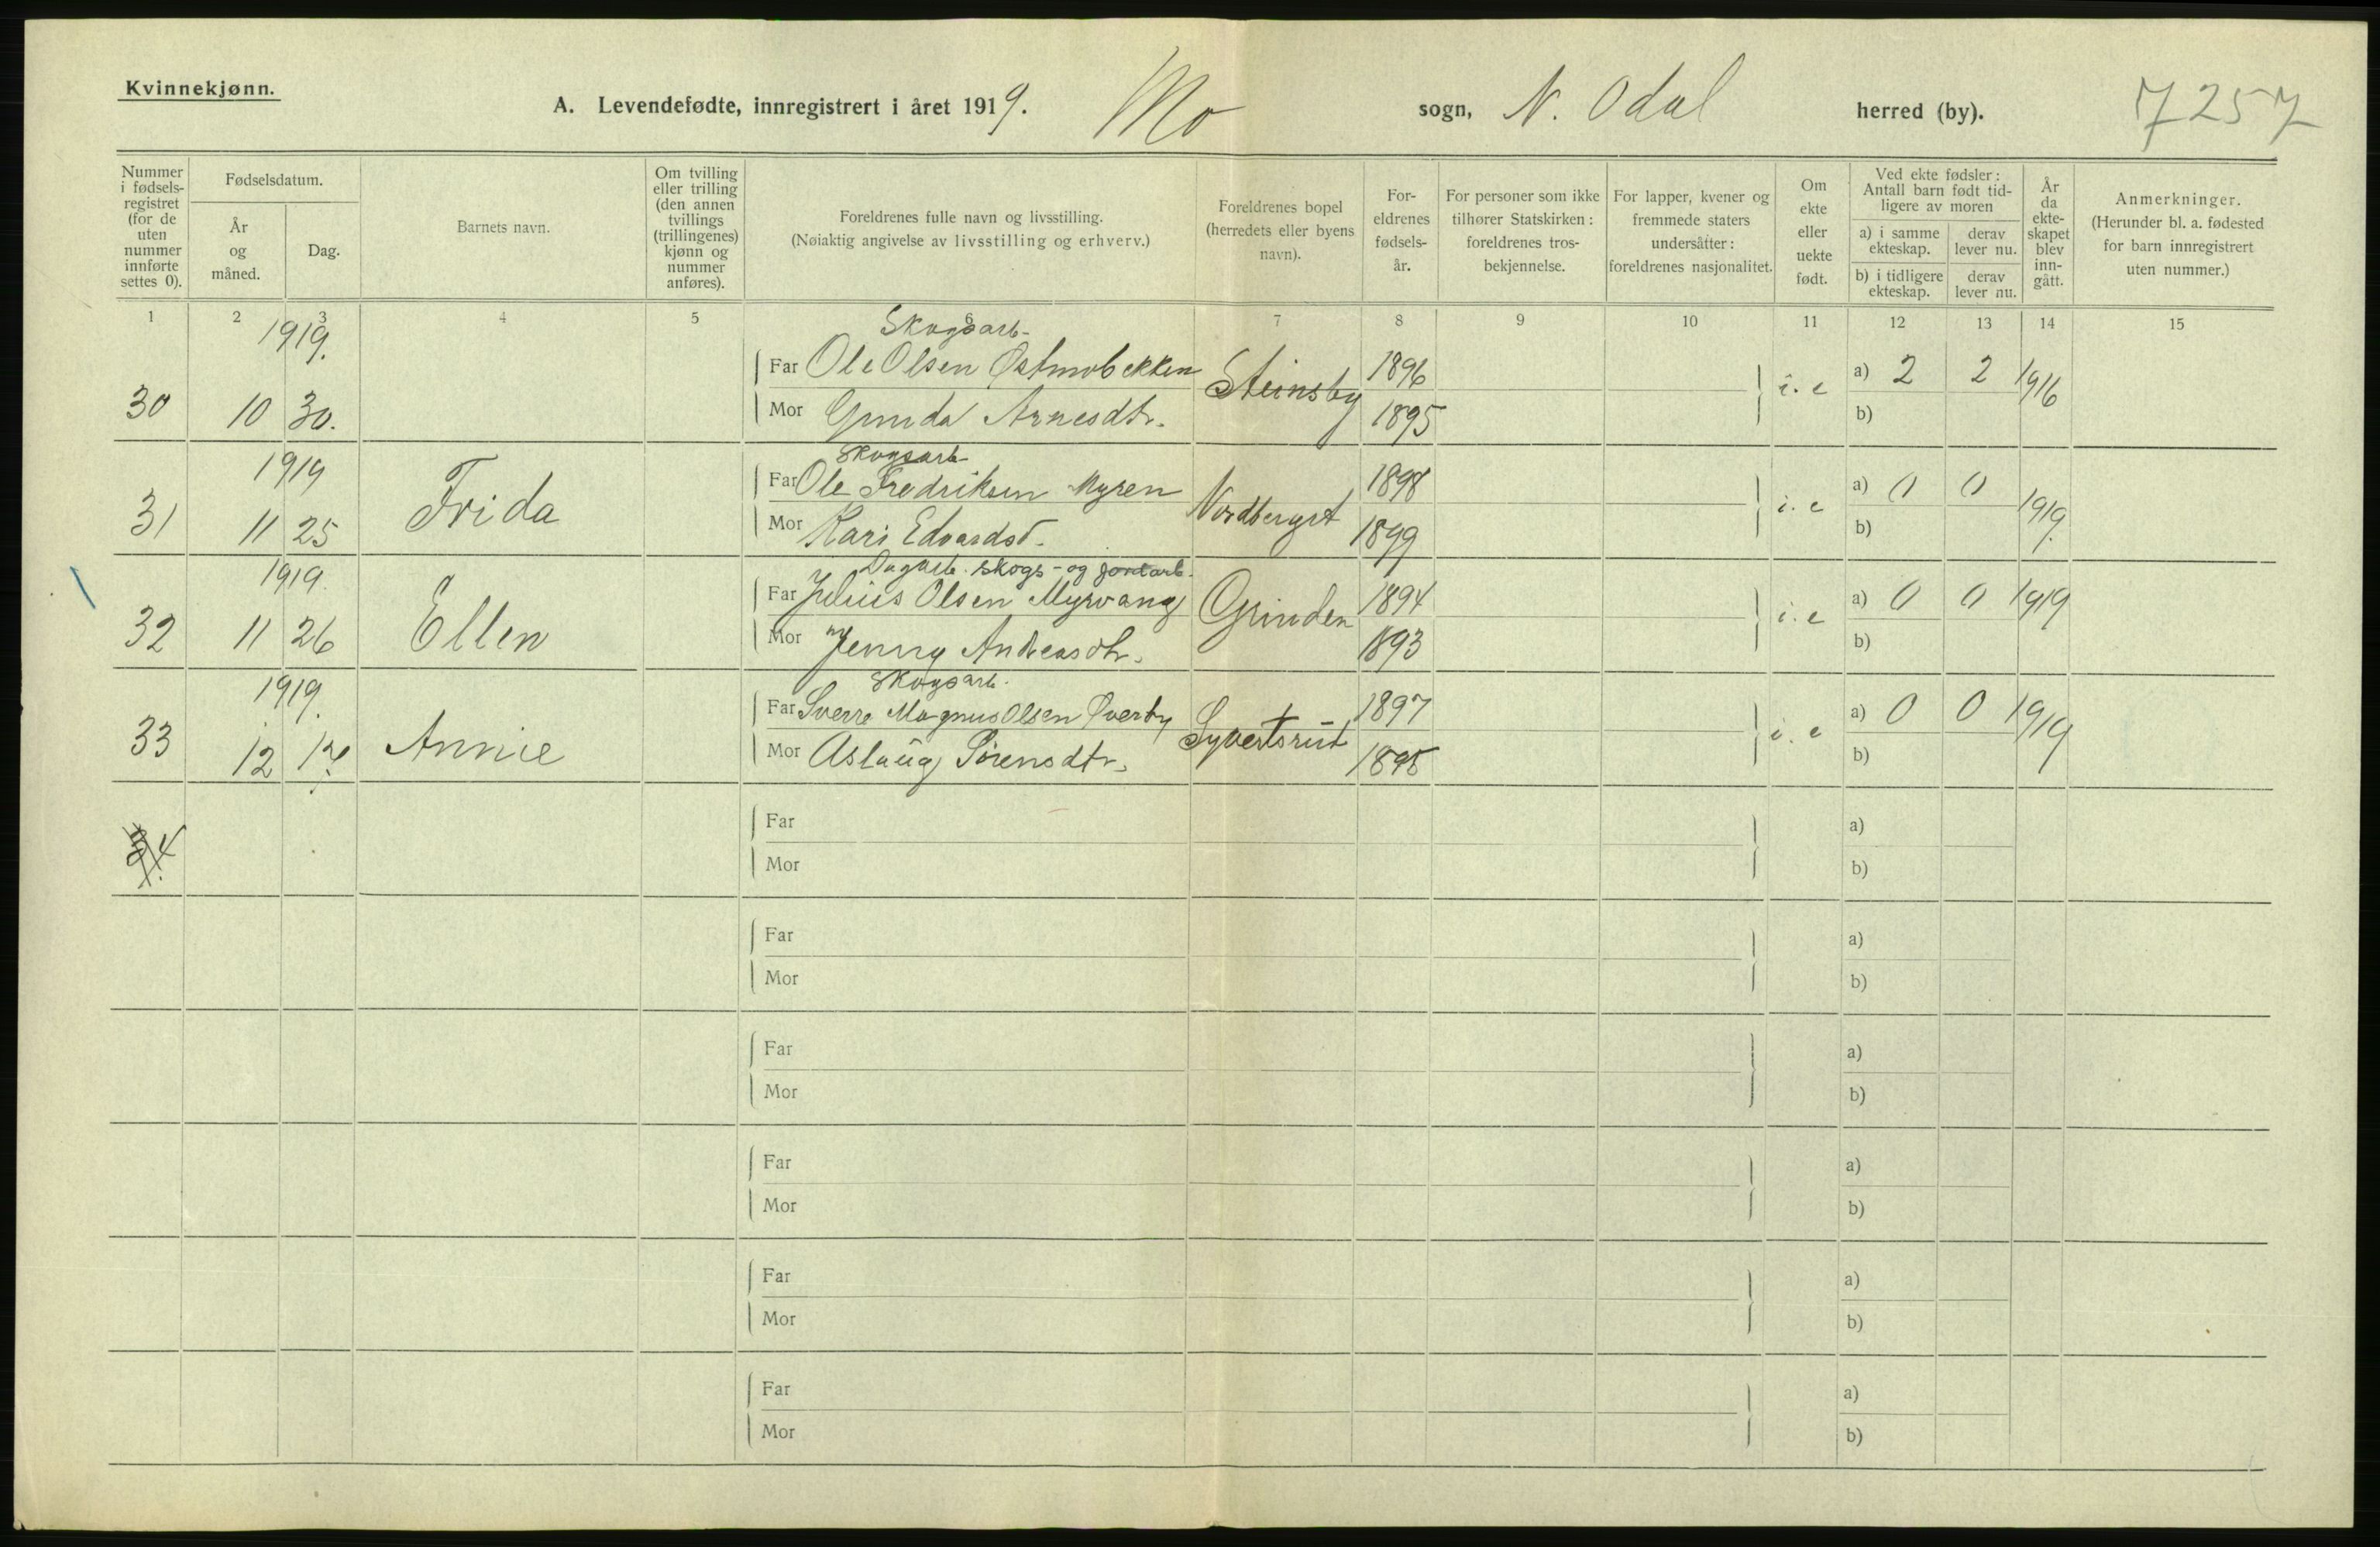 Kvinnekjønn.
A. Levendefødte, innregistrert i året 1919. Mo sogn, N. Odal herred (by). 7257
Nummer i fødsels-registret (for de uten nummer innførte settes 0).
Fødselsdatum.
År og måned.
Dag.
Barnets navn.
Om tvilling eller trilling (den annen tvillings (trillingenes) kjønn og nummer anføres).
Foreldrenes fulle navn og livsstilling.
(Nøiaktig angivelse av livsstilling og erhverv.)
Foreldrenes bopel (herredets eller byens navn).
For-eldrenes fødsels-år.
For personer som ikke tilhører Statskirken: foreldrenes tros-bekjennelse.
For lapper, kvener og fremmede staters undersåtter: foreldrenes nasjonalitet.
Om ekte eller uekte født.
Ved ekte fødsler: Antall barn født tid-ligere av moren
a) i samme ekteskap.
derav lever nu.
b) i tidligere ekteskap.
derav lever nu.
År da ekte-skapet blev inn-gått.
Anmerkninger.
(Herunder bl. a. fødested for barn innregistrert uten nummer.)
1 2 3 4 5 6 7 8 9 10 11 12 13 14 15
1919. Skogsarb-
Far Ole Olsen Østmobekken Steinsby 1896 i. e a) 2 2 1916
30 10 30. Mor Gunda Arnesdtr. 1895 b)
1919 Skogsarb-
Far Ole Fredriksen Myren 1898 i. e a) 0 0 1919.
31 11 25 Frida Mor Kari Edvardsd. 1899 b)
1919. Dagarb. skogs- og jordarb.
Far Julius Olsen Myrvang Grinden 1894 i. e a) 0 0 1919
32 11 26 Ellen Mor Jenny Andreasdtr. 1893 b)
1919. Skogsarb.
Far Sverre Magnus Olsen Øverby Syvertsrud 1897 i. e a) 0 0 1919
33 12 Annie Mor Aslaug Sørensdtr. 1895 b)
Far a)
34. Mor b)
Far a)
Mor b)
Far a)
Mor b)
Far a)
Mor b)
Far a)
Mor b)
Far a)
Mor b)